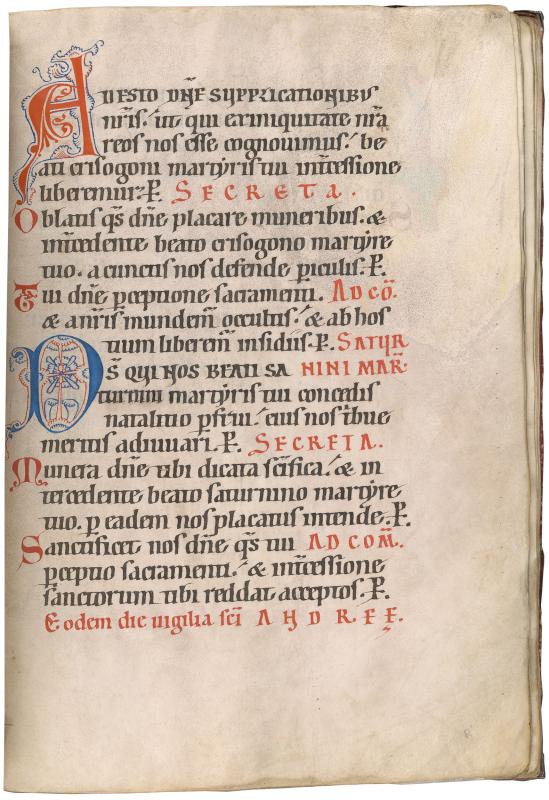 ADESTO DNE SUPPLICATIONIBUS
nr̄is. ut qui ex iniquitate nr̄a
reos nos esse cognovimus. be
ati crisogoni martyris tui int̄cessione
liberemur. P. SECRETA.
Oblatis qs̄ dn̄e placare muneribus. &
int̄cedente beato crisogono martyre
tuo. a cunctis nos defende piculis. P.
Tui dn̄e pceptione sacramenti. AD CŌ.
& a nr̄is mundem̄ occultis. & ab hos
tium liberem̄ insidiis. P. SATUR
DS̄ QUI NOS BEATI SA NINI MAR̄.
turnini martyris tui concedis
natalitio pfrui. eius nos tribue
meritis adiuuari. P. SECRETA.
Munera dn̄e tibi dicata sc̄ifica. & in
tercedente beato saturnino martyre
tuo. p eadem nos placatus intende. P.
Sanctificet nos dn̄e qs̄ tui AD COM̄.
pceptio sacramenti. & int̄cessione
sanctorum tibi reddat acceptos. P.
Eodem die uigilia sc̄i ANDREE.